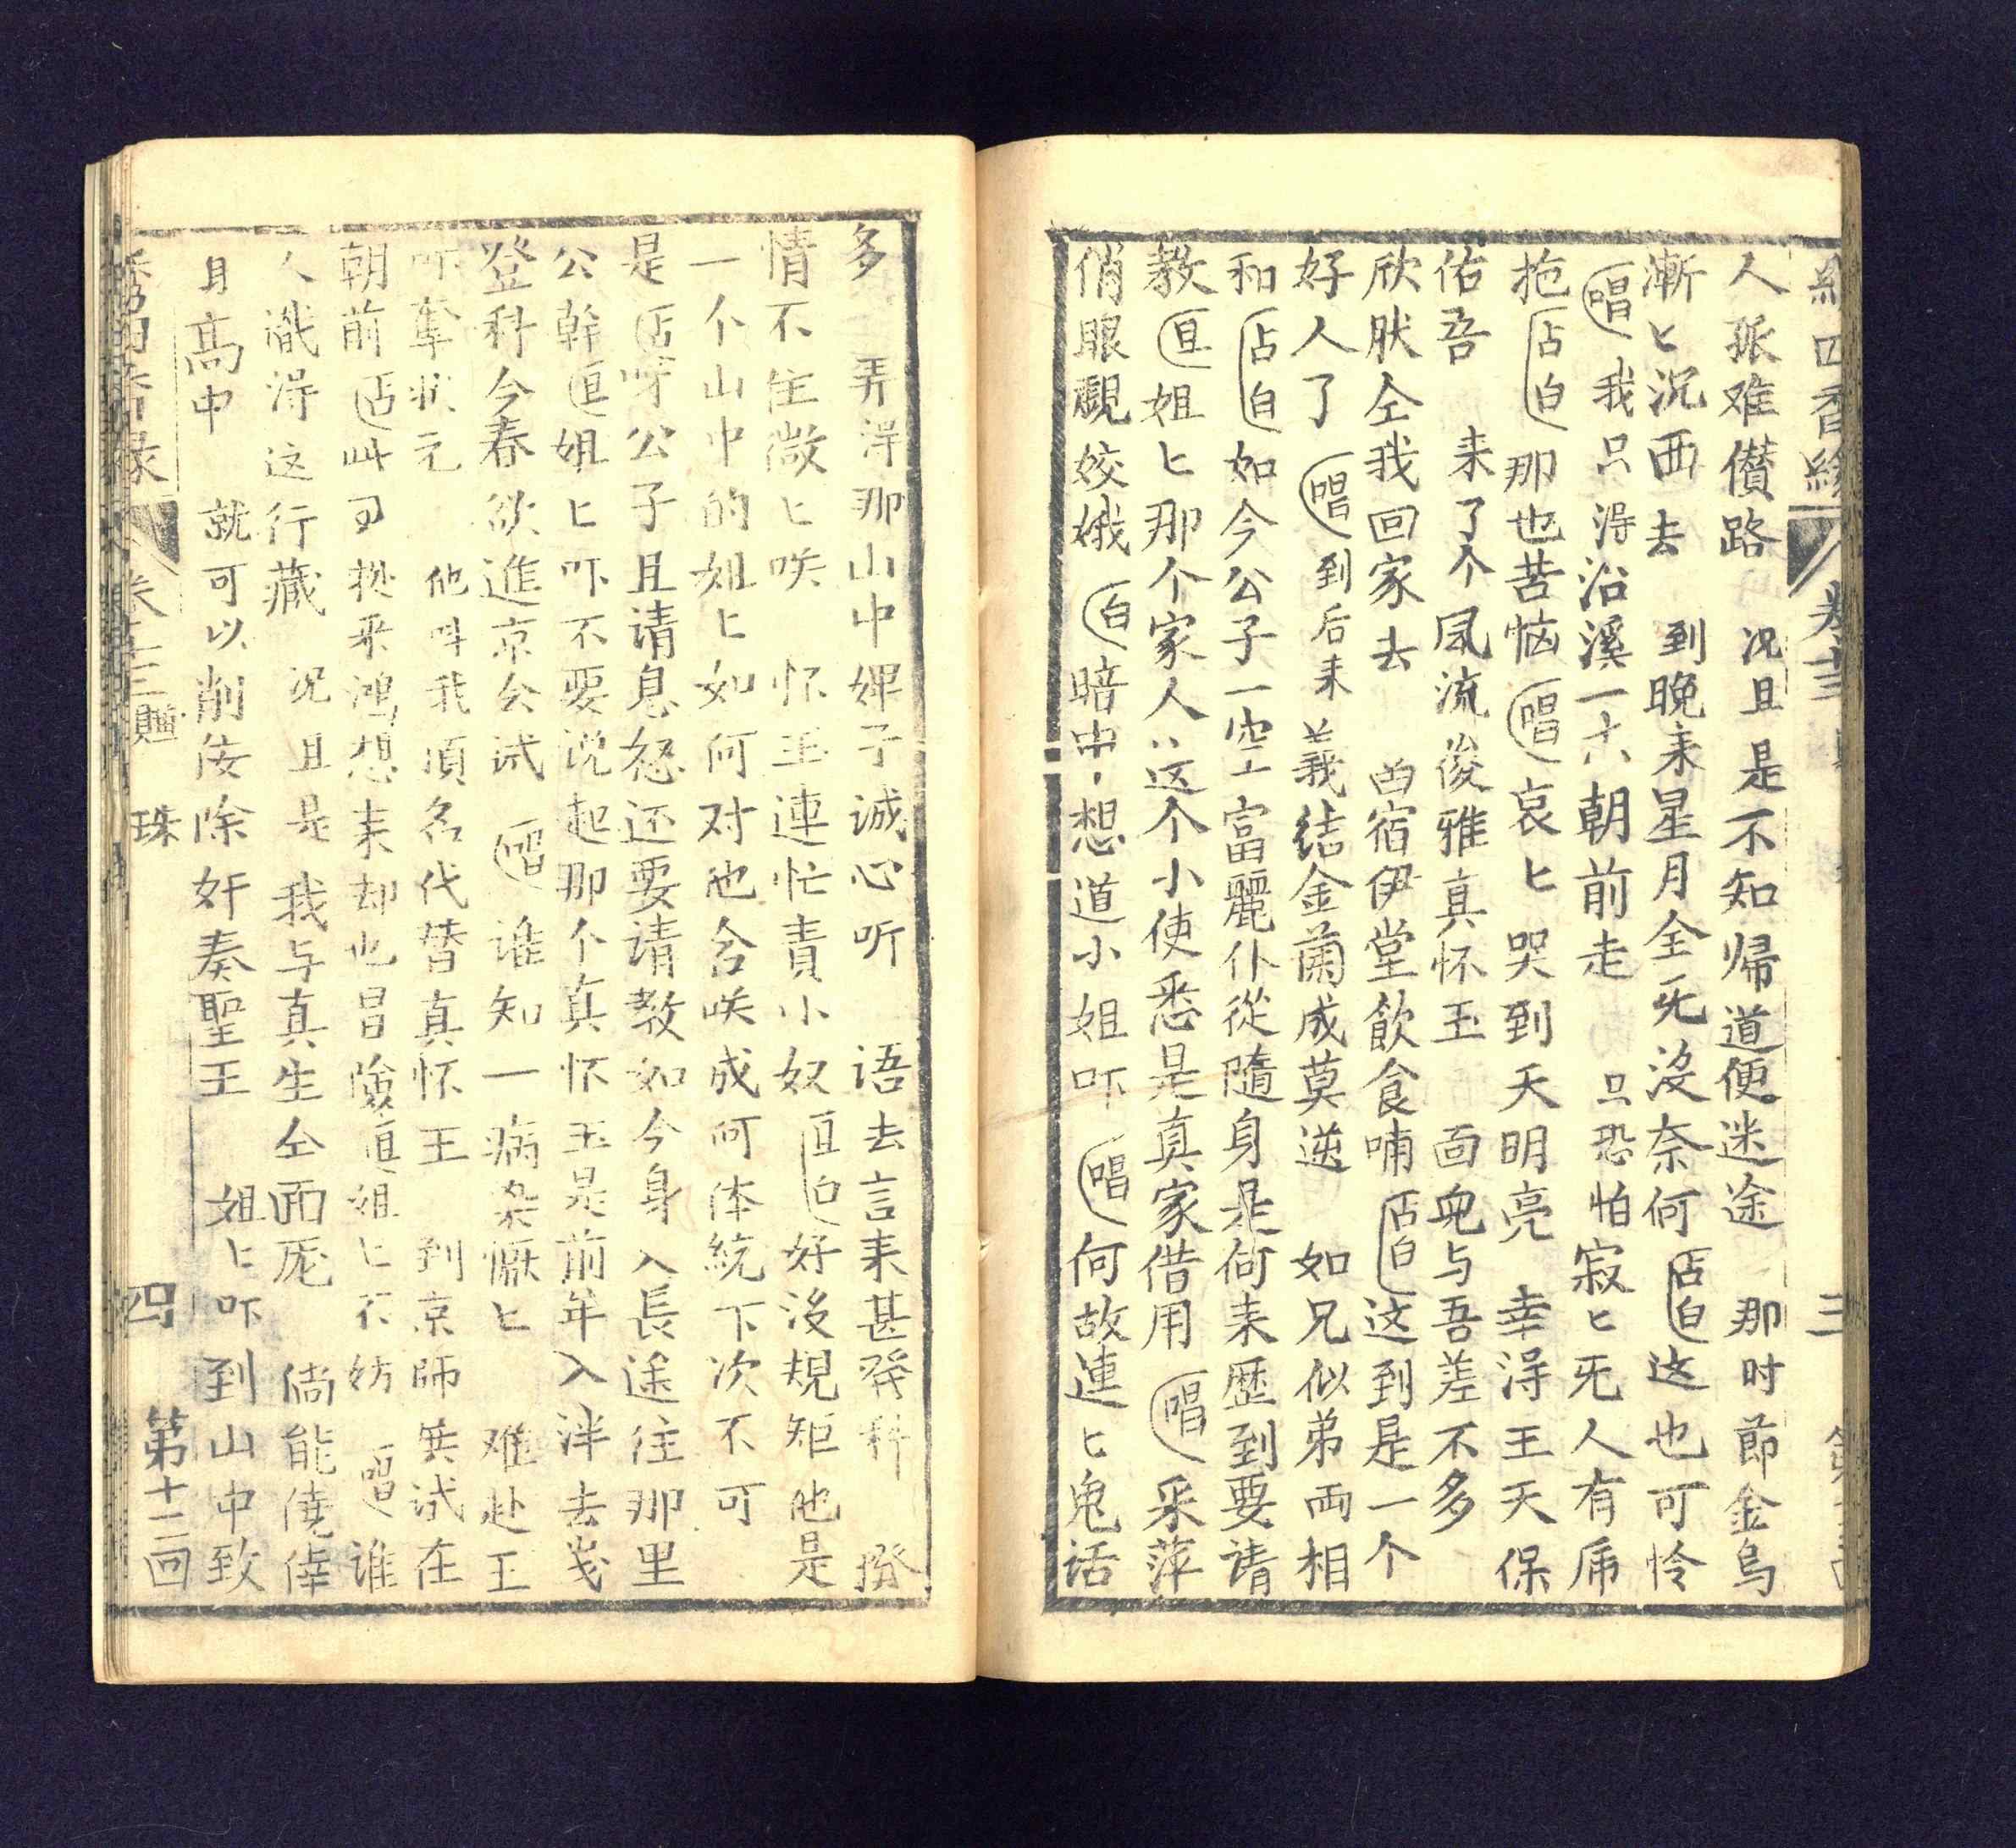 人孤难儹路　况且是不知帰道便迷途　那时節金烏
漸匕沉西去　到晚来星月全旡没奈何占白这也可怜
唱我只淂沿溪一六朝前走　只恐怕寂匕旡人有席
抱占白那也苦恼唱哀匕哭到天明亮　幸淂王天保
佑吾　来了个风流俊雅真怀玉　面皃与吾差不多
欣肰仝我回家去　畄宿伊堂飲食哺占白这到是一个
好人了唱到后来義结金蘭成莫逆　如兄似弟両相
和占白如今公子一空富麗仆從隨身是何来歴到要请
教旦姐匕那个家人这个小使悉是真家借用唱采萍
俏眼覷姣娥白暗中想道小姐吓唱何故連匕鬼话
多　弄淂那山中婢子诚心听　语去言来甚發科
情不住微匕咲　怀玉連忙責小奴旦白好没規矩他是
一个山中的姐匕如何对他含咲成何体統下次不可
是占呀公子且请息怒还要请教如今身入長途往那里
公幹旦姐匕吓不要说起那个真怀玉是前年入泮去戋
登科今春欲進京会试唱谁知一病染懨匕　难赴王
吓奪状元　他叫我頂名代替真怀王　到京師興试在
朝前占此可従来鸿想来却也冒険旦姐匕不妨唱谁
人識淂这行藏　况且是我与真生仝面厐　倘能僥倖
身高中　就可以削佞除奸奏聖王　姐匕吓到山中致
卷十三　贈珠　四　第十二回